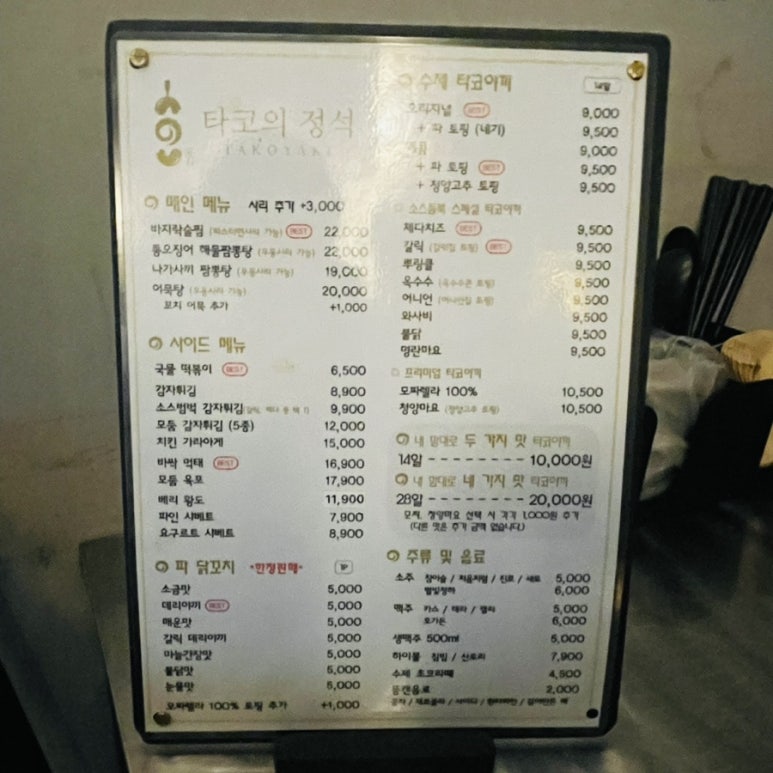 타코의 정석
TAKOYAKI
메인 메뉴 사리 추가 +3,000
바지락술찜 (파스타면사리 가능) BEST 22,000
통오징어 해물짬뽕탕 (우동사리 가능) 22,000
나가사끼 짬뽕탕 (우동사리 가능) 19,000
어묵탕 (우동사리 가능) 20,000
꼬치 어묵 추가 +1,000
사이드 메뉴
국물 떡볶이 BEST 6,500
감자튀김 8,900
소스범벅 감자튀김 9,900
모둠 감자튀김 (5종) 12,000
치킨 가라아게 15,000
바싹 먹태 BEST 16,900
모둠 육포 17,900
베리 황도 11,900
파인 샤베트 7,900
요구르트 샤베트 8,900
파 닭꼬치 *한정판매* 1P
소금맛 5,000
데리야끼 BEST 5,000
매운맛 5,000
갈릭 데리야끼 5,000
마늘간장맛 5,000
불닭맛 5,000
눈물맛 5,000
모짜렐라 100% 토핑 추가 +1,000
수제 타코야끼 14알
오리지널 BEST 9,000
+ 파 토핑 (네기) 9,500
9,000
+ 파 토핑 BEST 9,500
+ 청양고추 토핑 9,500
소스듬뿍 스페셜 타코야끼
체다치즈 BEST 9,500
갈릭 (갈릭칩 토핑) BEST 9,500
뿌링클 9,500
옥수수 (옥수수콘 토핑) 9,500
어니언 (어니언칩 토핑) 9,500
와사비 9,500
불닭 9,500
명란마요 9,500
프리미엄 타코야끼
모짜렐라 100% 10,500
청양마요 (청양고추 토핑) 10,500
내 맘대로 두 가지 맛 타코야끼
14알 - - - - - - - - 10,000원
내 맘대로 네 가지 맛 타코야끼
28알 - - - - - - - - 20,000원
모짜, 청양마요 선택 시 각각 1,000원 추가
(다른 맛은 추가 금액 없습니다.)
주류 및 음료
소주 참이슬 / 처음처럼 / 진로 / 새로 5,000
별빛청하 6,000
맥주 카스 / 테라 / 켈리 5,000
호가든 6,000
생맥주 500ml 5,000
하이볼 짐빔 / 산토리 7,900
수제 초코라떼 4,500
뚱캔음료 2,000
콜라 / 제로콜라 / 사이다 / 환타파인 /